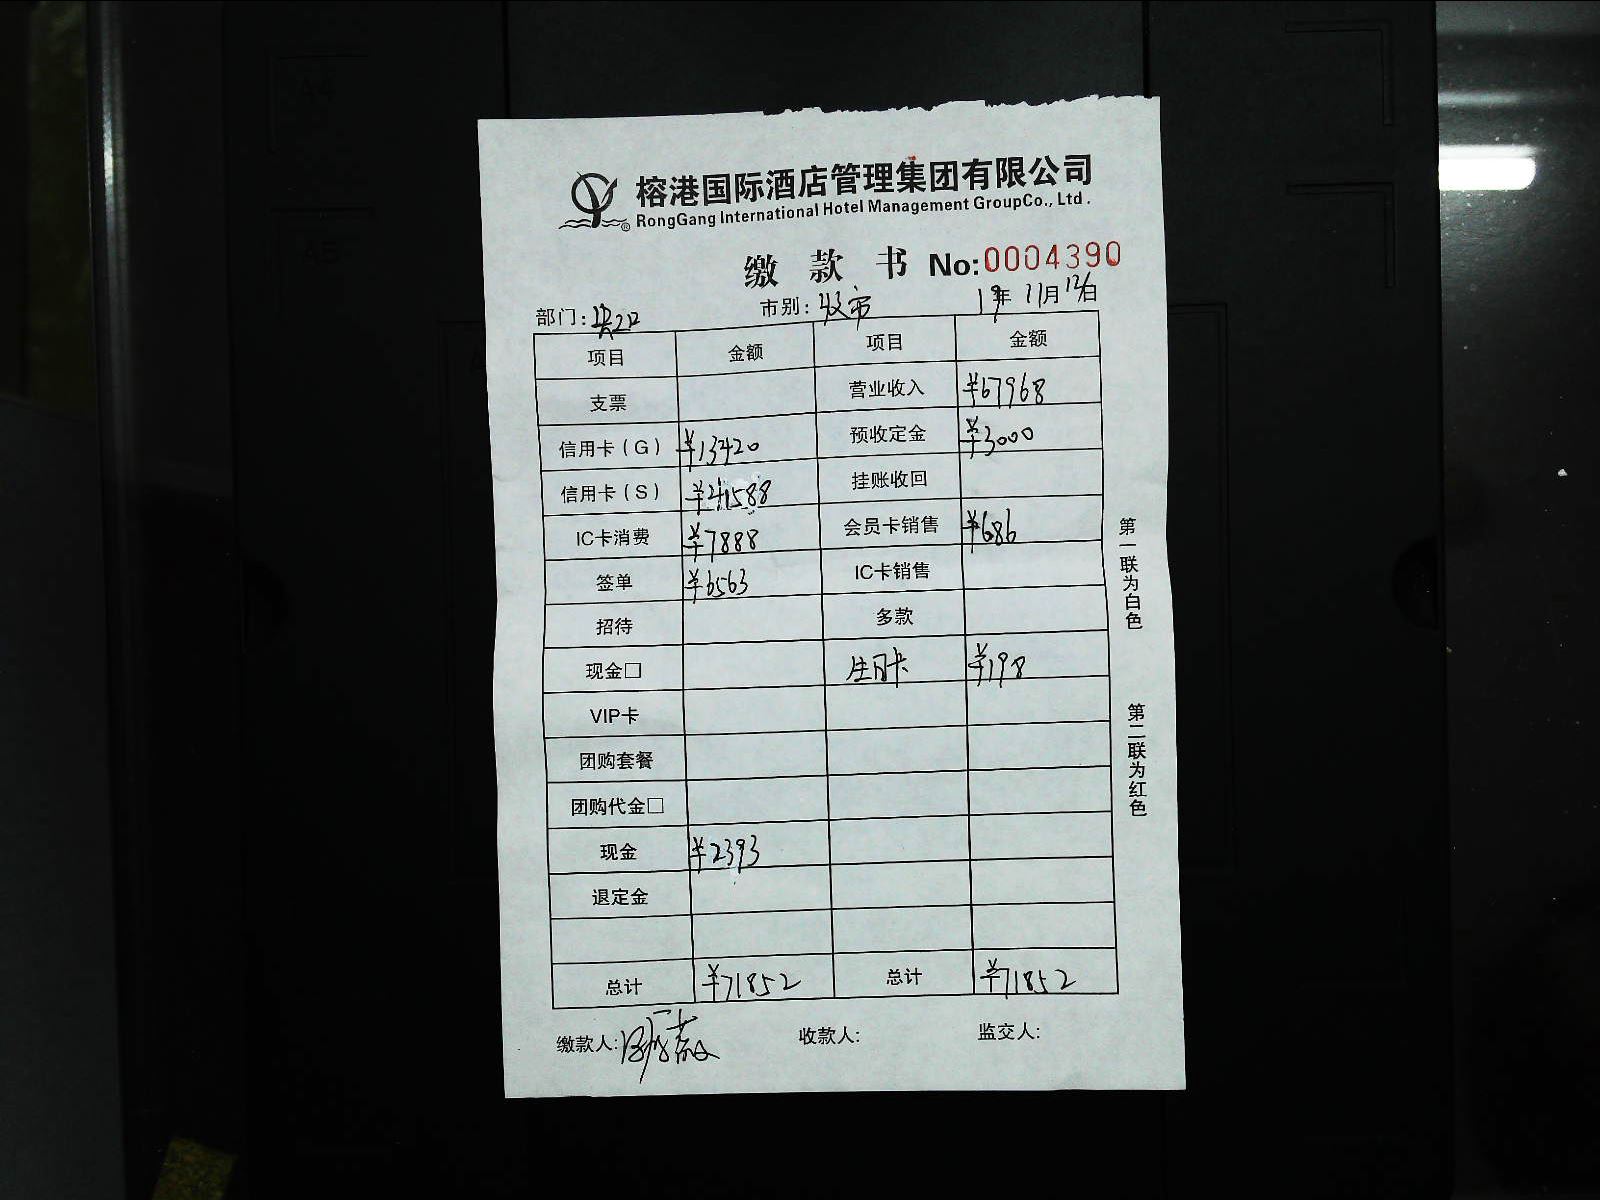 榕港国际酒店管理集团有限公司
RongGang International Hotel Management GroupCo., Ltd.
缴款书 No:0004390
部门: 市别:收市 19年11月12日
项目 金额 项目 金额
支票 营业收入 ¥67968
信用卡(G) ¥13420 预收定金 ¥3000
信用卡(S) ¥41588 挂账收回
IC卡消费 ¥7888 会员卡销售 ¥686
签单 ¥6563 IC卡销售
招待 多款
现金□ 生日卡 ¥198
VIP卡
团购套餐
团购代金□
现金 ¥2393
退定金
总计 ¥71852 总计 ¥71852
缴款人: 收款人: 监交人:
第一联为白色
第二联为红色
A4
A5